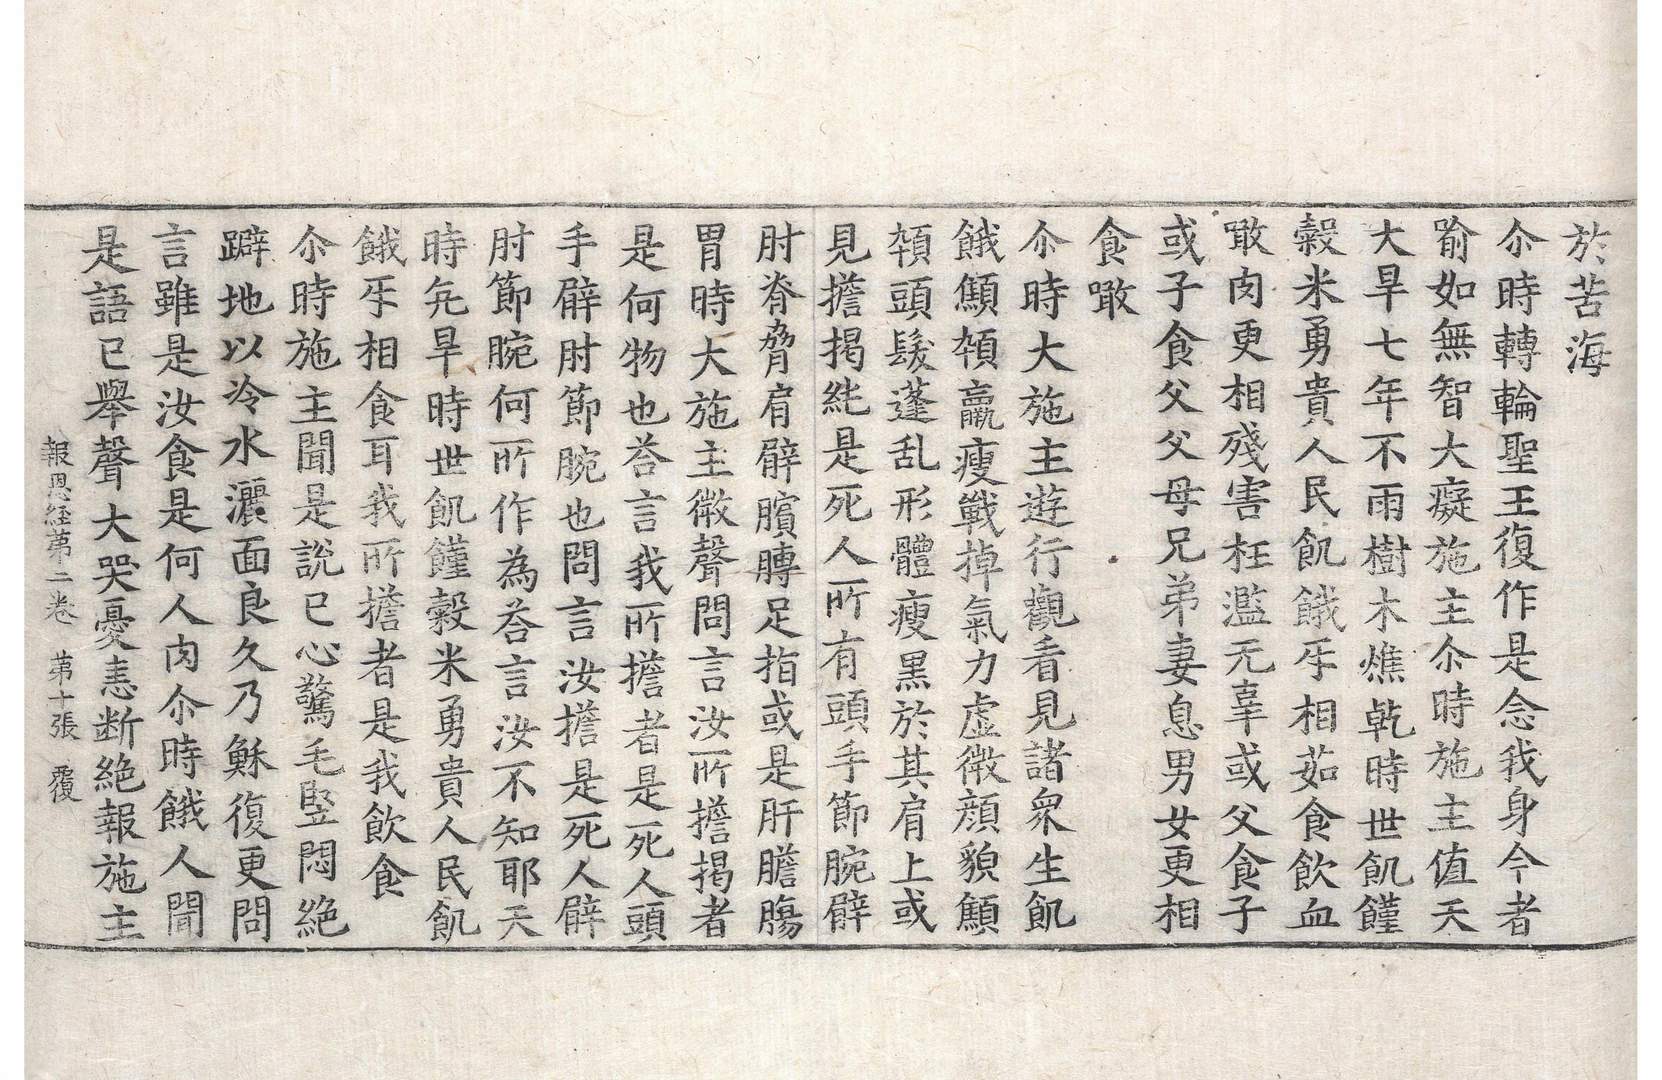 於苦海
尒時轉輪聖王復作是念我身今者
喻如無智大癡施主尒時施主值天
大旱七年不雨樹木燋乹時世飢饉
糓米勇貴人民飢餓乎相茹食飲血
噉肉更相殘害枉濫无辜或父食子
或子食父父母兄弟妻息男女更相
食噉
尒時大施主遊行觀看見諸衆生飢
餓顦頓羸瘦戰掉氣力虛微顔貌顦
頓頭髮蓬乱形體瘦黑於其肩上或
見擔揭純是死人所有頭手節腕臂
肘脊脅肩髀臏膊足指或是肝膽膓
胃時大施主微聲問言汝所擔揭者
是何物也荅言我所擔者是死人頭
手臂肘節腕也問言汝擔是死人臂
肘節腕何所作為荅言汝不知耶天
時亢旱時世飢饉糓米勇貴人民飢
餓乎相食耳我所擔者是我飲食
尒時施主聞是說已心驚毛竪悶絕
躃地以冷水灑面良久乃穌復更問
言雖是汝食是何人肉尒時餓人聞
是語已舉聲大哭憂恚断絕報施主
報恩経苐二卷　苐十張　覆